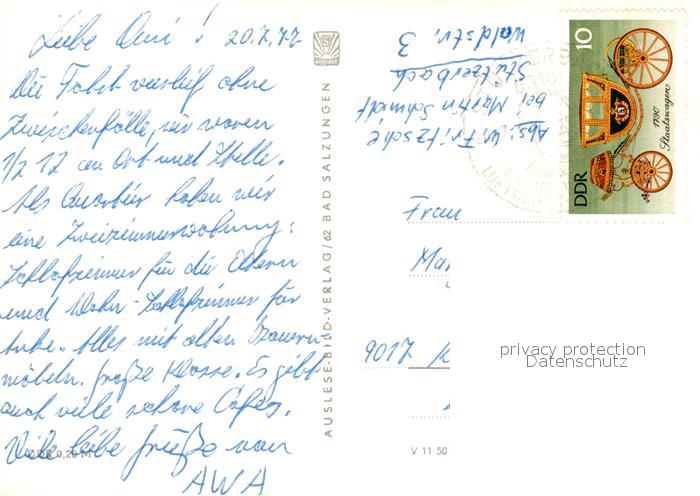 Liebe Omi! 20.7.77
Die Fahrt verlief ohne
Zwischenfälle, wir waren
1/2 12 an Ort und Stelle.
Als Quartier haben wir
eine Zweizimmerwohnung:
Schlafzimmer für die Eltern
und Wohn-Schlafzimmer für
Anke. Alles mit alten Bauern-
möbeln. Große Klasse. Es gibt
auch viele schöne Cafés.
Viele liebe Grüße von
AWA
DDR 0,20 M
AUSLESE
AUSLESE-BILD-VERLAG/62 BAD SALZUNGEN
Abs.: W. Fritzsche
bei Martin Schmidt
Stützerbach
Waldstr. 3
10
1790
Staatswagen
DDR
Frau
Mar
9017 K
privacy protection
Datenschutz
V 11 50